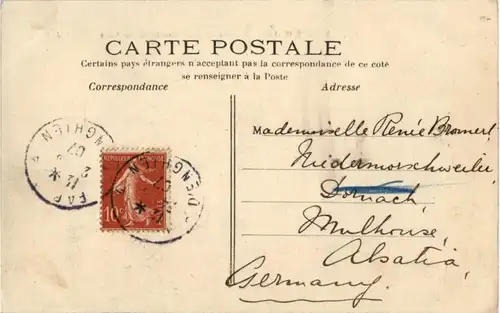 CARTE POSTALE
Certains pays étrangers n'acceptant pas la correspondance de ce coté
se renseigner à la Poste
Correspondance
Adresse
Mademoiselle Renée
Niedermorschweiler
Dornach
Mulhouse
Alsatia
Germany
D'ENGHIEN
10c